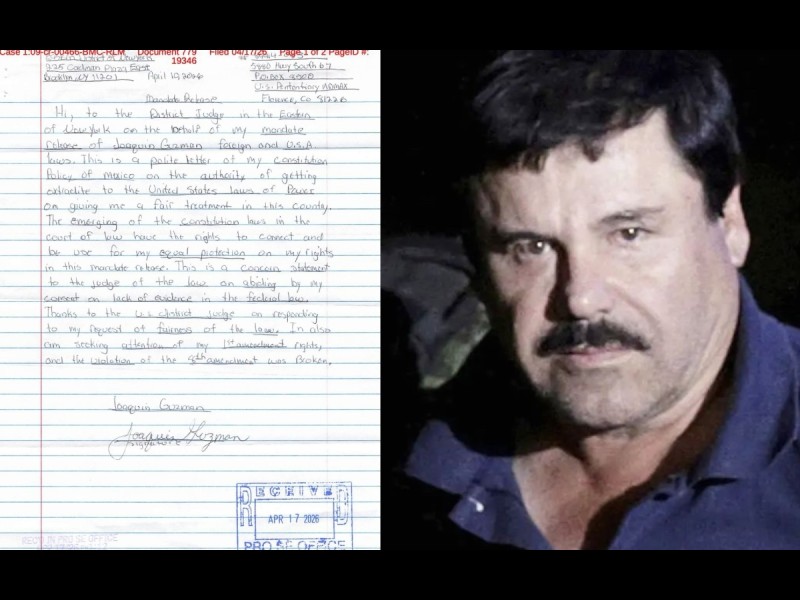 Case 1:09-cr-00466-BMC-RLM Document 779 Filed 04/17/26 Page 1 of 2 PageID #:
19346
225 Cadman Plaza East
Brooklyn, NY 11201
April 10, 2026
5880 Hwy South 67
U.S. Penitentiary ADMAX
Florence, Co 81226
Mandate Release
Hi, to the District Judge in the Eastern
of New York on the behalf of my mandate
release of Joaquin Guzman foreign and U.S.A
laws. This is a polite letter of my Constitution
Policy of mexico on the authority of getting
extradite to the United States laws of Power
on giving me a fair treatment in this country.
The emerging of the constitution laws in the
court of law have the rights to connect and
be use for my equal protection on my rights
in this mandate release. This is a concern statement
to the judge of the law on abiding by my
consent on lack of evidence in the federal law.
Thanks to the U.S district judge on responding
to my request of fairness of the law. In also
am seeking attention of my 1st amendment rights,
and the violation of the 8th amendment was Broken.
Joaquin Guzman
Joaquin Guzman
signature
RECEIVED
APR 17 2026
PRO SE OFFICE
REC'D IN PRO SE OFFICE